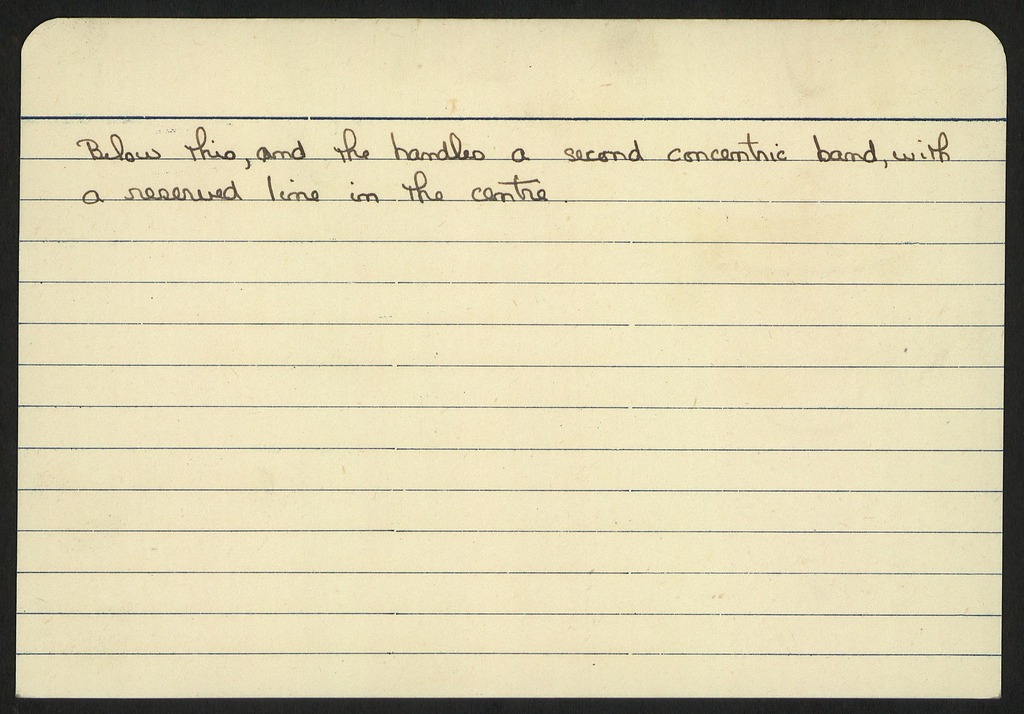 Below this, and the handles a second concentric band, with
a reserved line in the centre.